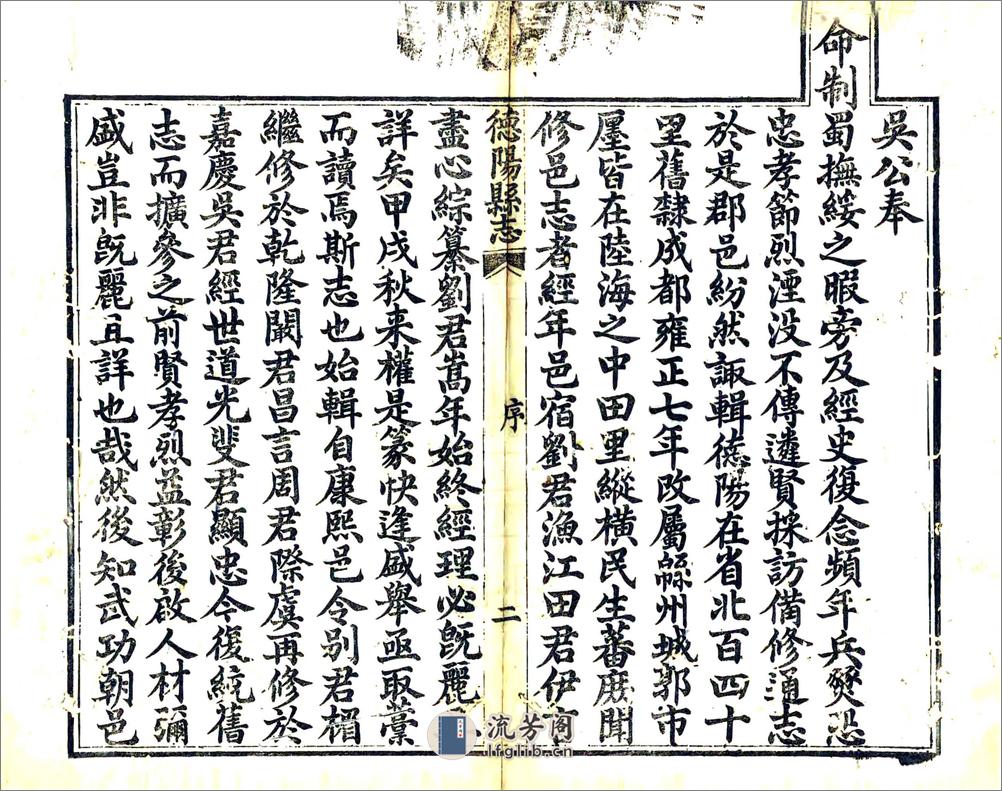 吳公奉
命制蜀撫綏之暇旁及經史復念頻年兵燹恐
忠孝節烈湮没不傳遴賢採訪備修通志
於是郡邑紛然諏輯德陽在省北百四十
里舊隸成都雍正七年改屬緜州城郭市
廛皆在陸海之中田里縱橫民生蕃庶聞
修邑志者經年邑宿劉君漁江田君伊
德陽縣志 序 二
盡心綜纂劉君嵩年始終經理必既麗
詳矣甲戌秋来權是篆快逢盛舉亟取藁
而讀焉斯志也始輯自康熙邑令别君楣
繼修於乾隆闞君昌言周君際虞再修於
嘉慶吳君經世道光斐君顯忠今復統舊
志而擴參之前賢孝烈益彰後啟人材彌
盛豈非既麗且詳也哉然後知武功朝邑
流芳阁
lfglib.cn